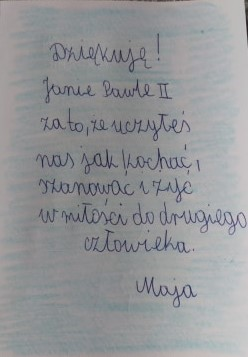 Dziękuję!
Janie Pawle II
za to, że uczyłeś
nas jak kochać,
szanować i żyć
w miłości do drugiego
człowieka.
Maja